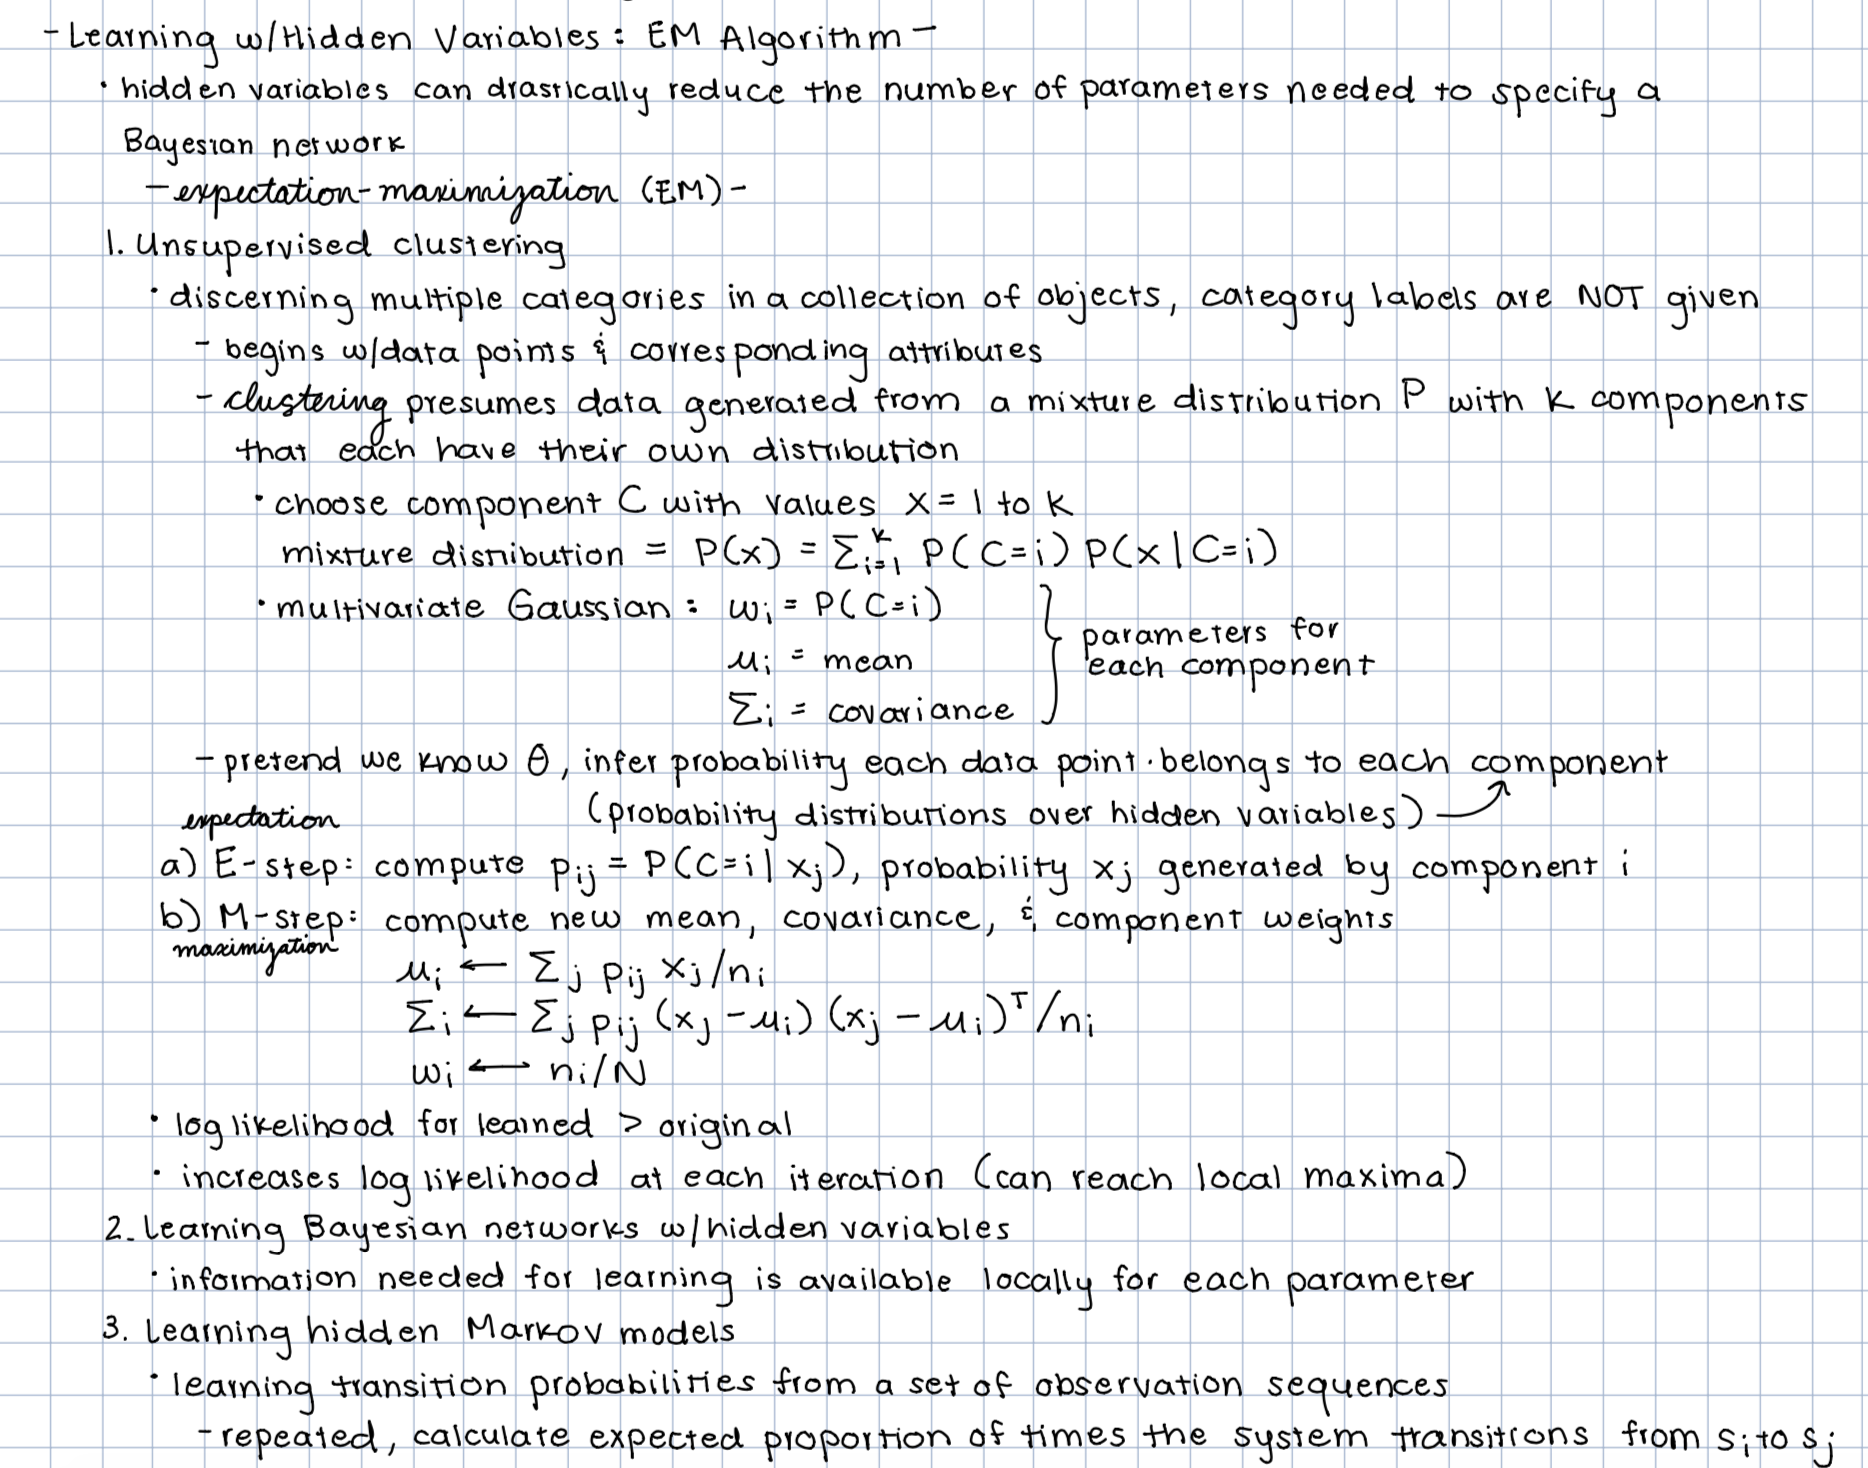 - Learning w/Hidden Variables: EM Algorithm -
• hidden variables can drastically reduce the number of parameters needed to specify a
Bayesian network
- expectation-maximization (EM) -
1. Unsupervised clustering
• discerning multiple categories in a collection of objects, category labels are NOT given
- begins w/data points & corresponding attributes
- clustering presumes data generated from a mixture distribution P with k components
that each have their own distribution
• choose component C with values x = 1 to k
mixture distribution = P(x) = Σᵢ₌₁ᵏ P(C=i) P(x|C=i)
• multivariate Gaussian: wᵢ = P(C=i)
μᵢ = mean
Σᵢ = covariance
} parameters for
each component
- pretend we know θ, infer probability each data point belongs to each component
(probability distributions over hidden variables)
expectation
a) E-step: compute pᵢⱼ = P(C=i|xⱼ), probability xⱼ generated by component i
b) M-step: compute new mean, covariance, & component weights
maximization
μᵢ ← Σⱼ pᵢⱼ xⱼ/nᵢ
Σᵢ ← Σⱼ pᵢⱼ (xⱼ - μᵢ) (xⱼ - μᵢ)ᵀ/nᵢ
wᵢ ← nᵢ/N
• log likelihood for learned > original
• increases log likelihood at each iteration (can reach local maxima)
2. Learning Bayesian networks w/hidden variables
• information needed for learning is available locally for each parameter
3. Learning hidden Markov models
• learning transition probabilities from a set of observation sequences
- repeated, calculate expected proportion of times the system transitions from sᵢ to sⱼ